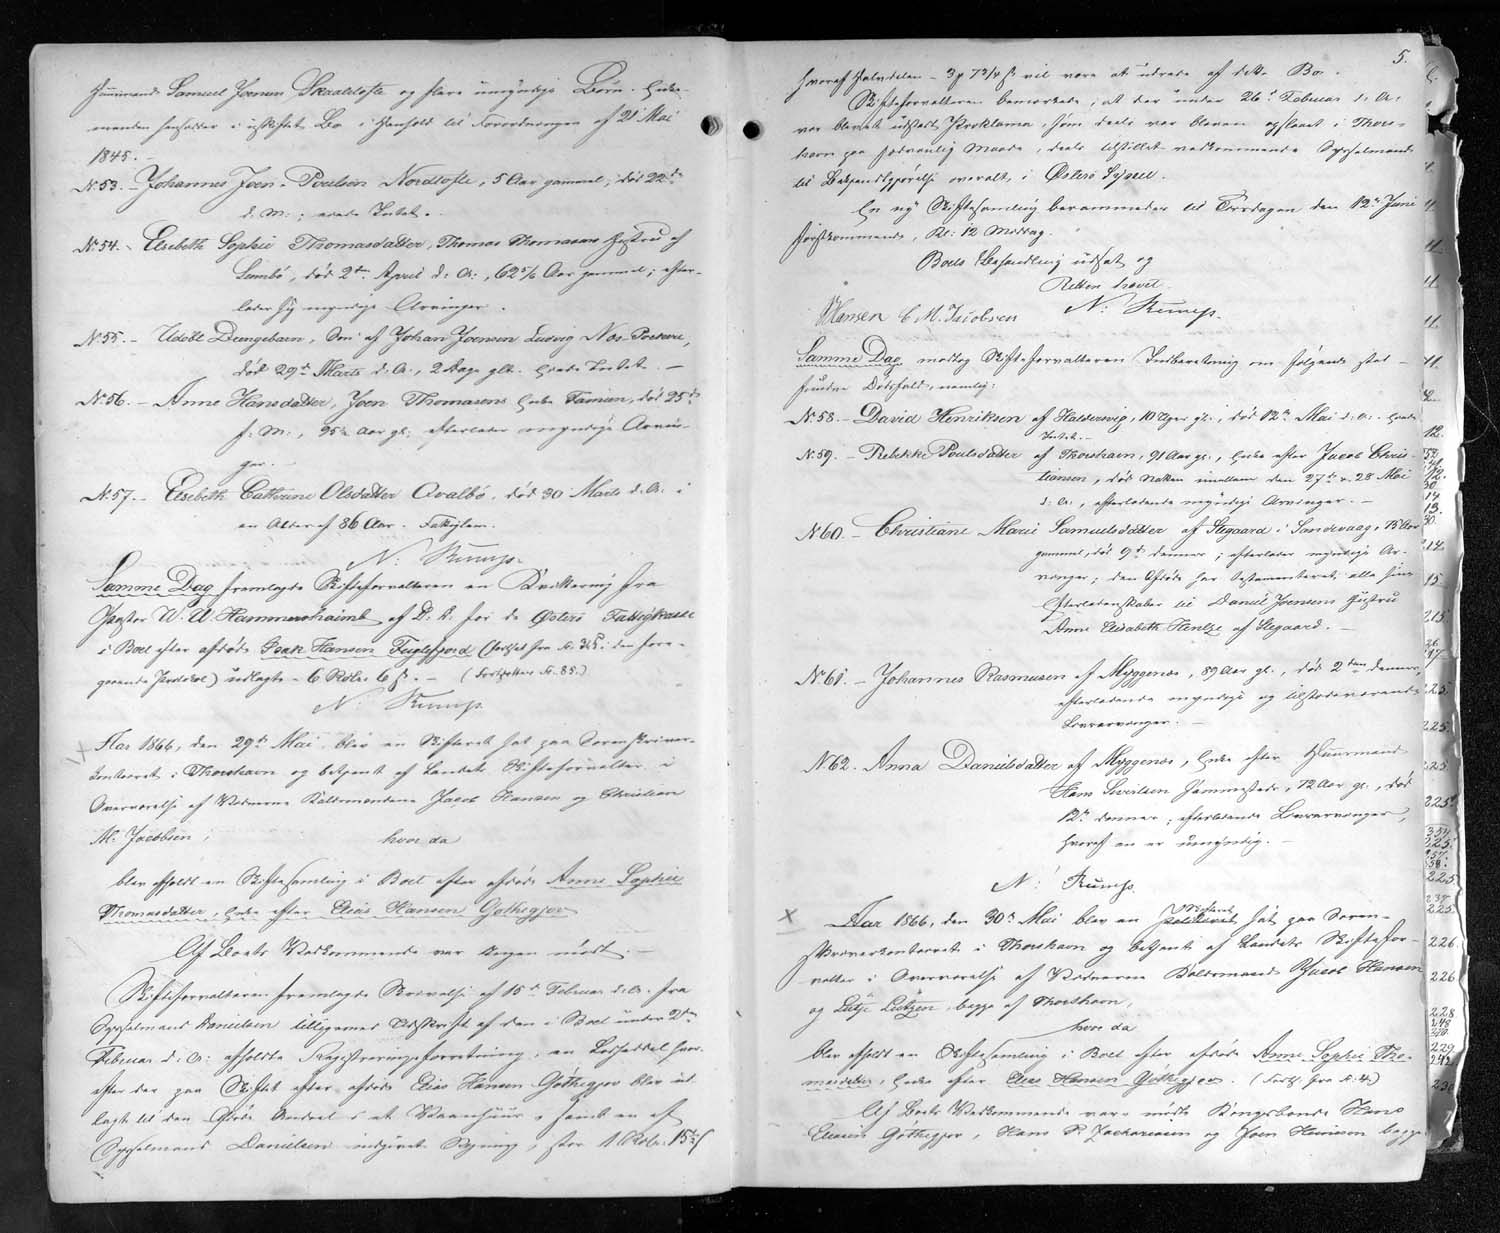 Huusmand Samuel Joensen Skaaletofte og flere umyndige Børn. Enke-
manden hensidder i uskiftet Bo i Henhold til Forordningen af 21 Mai
1845. -
No. 53. - Johannes Joen Poulsen Nordtofte, 5 Aar gammel, død 22de
d. M.; eiede Intet. -
No. 54. - Elsebeth Sophie Thomasdatter, Thomas Thomasens Hustru af
Lambø, død 2den April d. A., 62 5/6 Aar gammel; efter-
lader sig myndige Arvinger.
No. 55. - Udøbt Drengebarn, Søn af Johan Joensen Ludvig
død 29de Marts d. A., 2 Dage glt. Eiede Intet. -
No. 56. - Anne Hansdatter, Joen Thomasens Enke Famien, død 25de
f. M., Aar gl; efterlader myndige Arvin-
ger. -
No. 57. - Elsebeth Cathrine Olsdatter Qvalbø, død 30 Marts d. A. i
en Alder af 86 Aar. Fattiglem.
N. Rump.
Samme Dag fremlagde Skifteforvalteren en Kvittering fra
Pastor W. U. Hammershaimb af D. A. for de Østerø Fattigkasse
i Boet efter afdøde Isak Hansen Fuglefjord (fortsat fra No. i den fore-
gaaende Protokol) udlagte - 6 Rdlr 6 ß. - (Fortsættes No. 85.)
N. Rump
Aar 1866, den 29de Mai blev en Skifteret sat paa Sorenskriver-
kontoret i Thorshavn og betjent af Landets Skifteforvalter i
Overværelse af Vidnerne Politimændene Jacob Hansen og Christian
M. Jacobsen;
hvor da
blev afholdt en Skiftesamling i Boet efter afdøde Anne Sophie
Thomasdatter, Enke efter Elias Hansen Gøthegjov
Af Boets Vedkommende var Ingen mødt. -
Skifteforvalteren fremlagde Skrivelse af 15de Februar d. A. fra
Sysselmand Danielsen tilligemed Udskrift af den i Boet under 2den
Februar d. A. afholdte Registreringsforretning, en Lodseddel hvor-
efter der paa Skiftet efter afdøde Elias Hansen Gøthegjov blev ud-
lagt til den Afdøde Andeel i et samt en af
Sysselmand Danielsen indgivet Regning, stor 1 Rdlr. 15½ ß
5.
hvoraf Halvdelen - 3 ß vil være at udrede af dette Bo.
Skifteforvalteren bemærkede, at der under 26de Februar d. A.
var blevet udstedt Proklama, som deels var bleven opslaaet i Thors-
havn paa sædvanlig Maade, deels tilstillet vedkommende Sysselmænd
til Bekjendtgjørelse overalt i Østerø Syssel.
En ny Skiftesamling berammedes til Tirsdagen den 12te Juni
førstkommende, Kl. 12 Middag.
Boets Behandling udsat og
Retten hævet.
JHansen C M. Jacobsen N. Rump.
Samme Dag modtog Skifteforvalteren Indberetning om følgende sted-
fundne Dødsfald, nemlig:
No. 58. - David Henriksen af Haldersvig, 10 Uger gl., død 12te Mai d. A. Eiede
Intet. -
No. 59. - Rebekke Poulsdatter af Thorshavn, 91 Aar gl., Enke efter Jacob Chris-
tiansen, død Natten imellem den 27de & 28 Mai
d. A., efterladende myndige Arvinger. -
No. 60. - Christiane Marie Samuelsdatter af Stegaard i Sandevaag, 75 Aar
gammel, død 9de dennes; efterlader myndige Ar-
vinger; den Afdøde har testamenteret alle sine
Efterladenskaber til Daniel Joensens Hustru
Anne Elisabeth Hentze af Stegaard. -
No. 61. - Johannes Rasmusen af Myggenæs, 89 Aar gl., død 2den dennes,
efterladende myndige og tilstedeværende
Livsarvinger. -
No. 62. Anna Danielsdatter af Myggenæs, Enke efter Huusmand
Hans Sivertsen sammesteds, 72 Aar gl., død
12te dennes; efterladende Livsarvinger,
hvoraf en er umyndig. -
N. Rump
Aar 1866, den 30te Mai blev en Skifteret sat paa Soren-
skriverkontoret i Thorshavn og betjent af Landets Skiftefor-
valter i Overværelse af Vidnerne Politimænd Jacob Hansen
og Lütje Lützen, begge af Thorshavn,
hvor da
blev afholdt en Skiftesamling i Boet efter afdøde Anne Sophie Tho-
masdatter, Enke efter Elias Hansen Gøthegjov. (Forts. fra No. 4.)
Af Boets Vedkommende vare mødte Kongsbonde Hans
Eliasen Gøthegjov, Hans P. Zachariasen og Joen Hansen begge